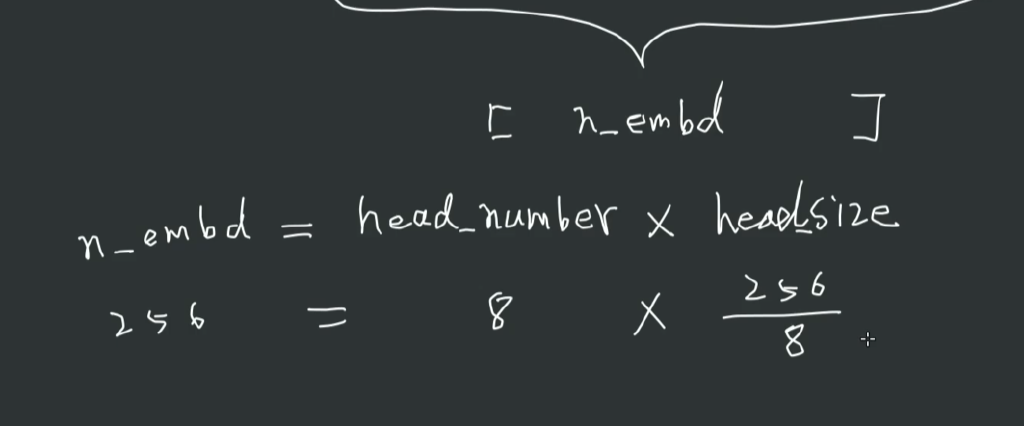 [ n_embd ]
n_embd = head_number × head_size
256 = 8 × 256/8